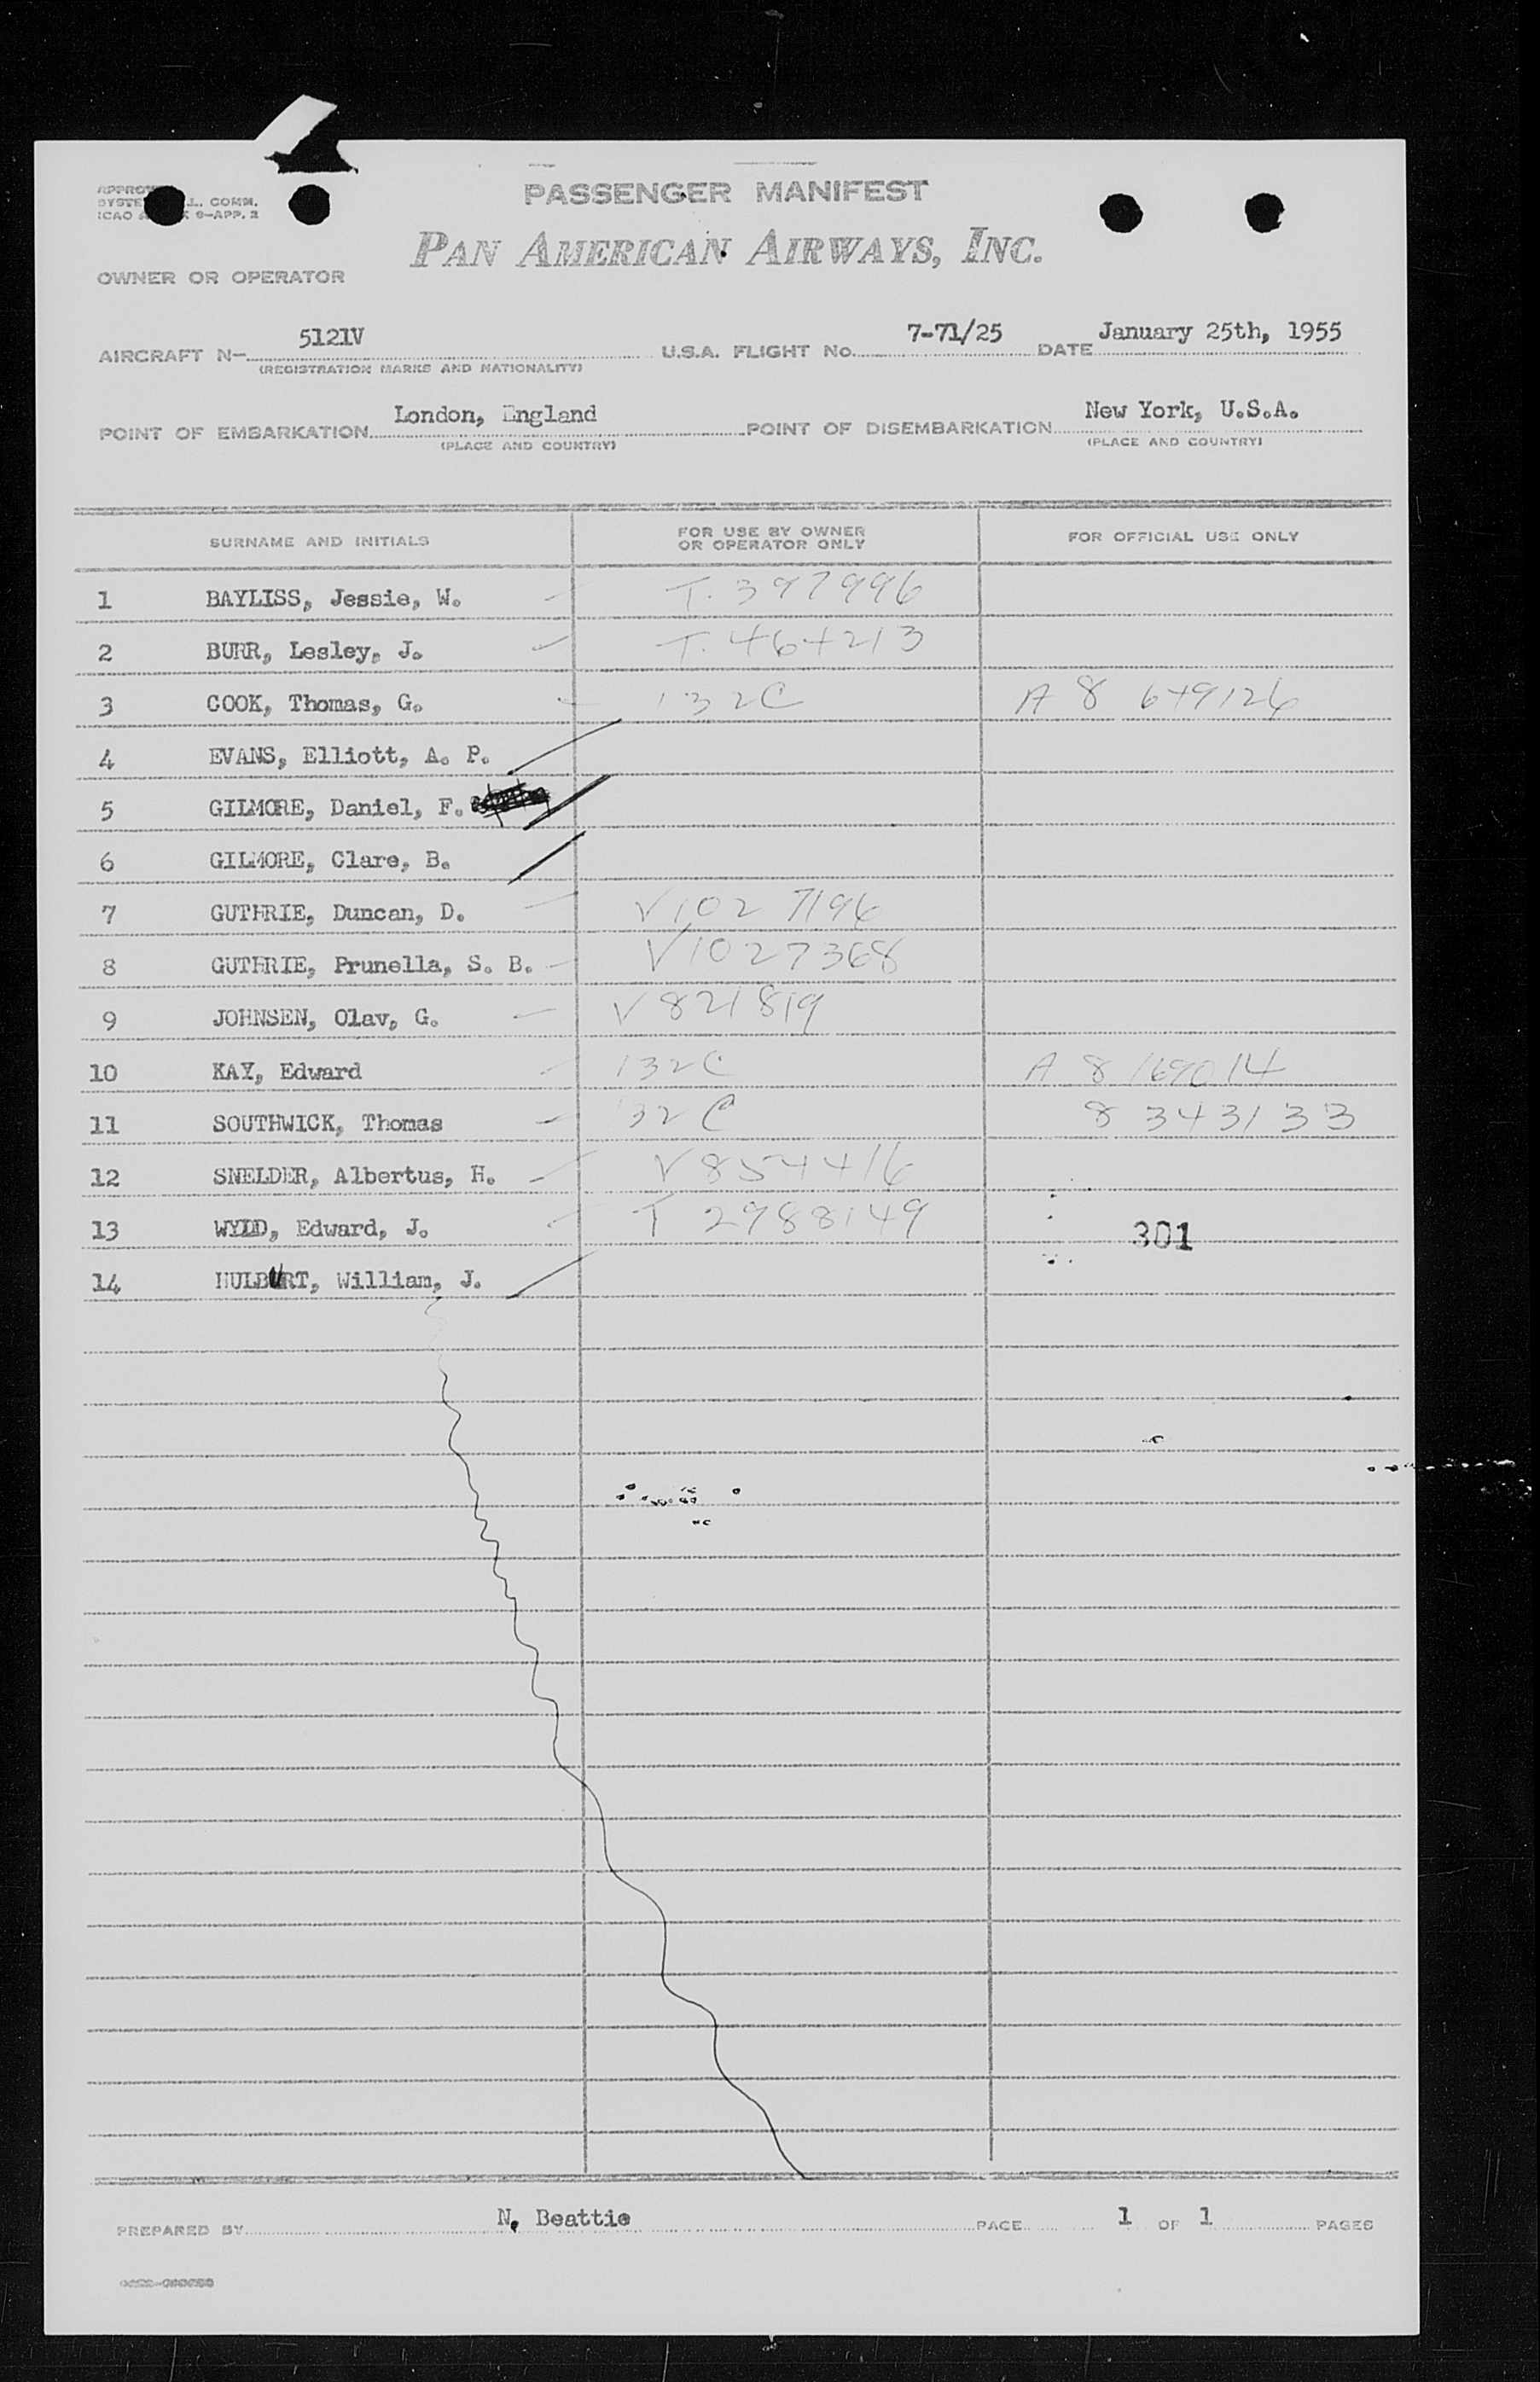 PASSENGER MANIFEST
PAN AMERICAN AIRWAYS, INC.
OWNER OR OPERATOR
AIRCRAFT N- 5121V U.S.A. FLIGHT No. 7-71/25 DATE January 25th, 1955
(REGISTRATION MARKS AND NATIONALITY)
POINT OF EMBARKATION London, England POINT OF DISEMBARKATION New York, U.S.A.
(PLACE AND COUNTRY) (PLACE AND COUNTRY)
SURNAME AND INITIALS FOR USE BY OWNER OR OPERATOR ONLY FOR OFFICIAL USE ONLY
1 BAYLISS, Jessie, W. T. 397996
2 BURR, Lesley, J. T. 464213
3 COOK, Thomas, G. 132C A 8 649126
4 EVANS, Elliott, A. P.
5 GILMORE, Daniel, F.
6 GILMORE, Clare, B.
7 GUTHRIE, Duncan, D. V1027196
8 GUTHRIE, Prunella, S. B. V1027368
9 JOHNSEN, Olav, G. V821819
10 KAY, Edward 132C A 8 169014
11 SOUTHWICK, Thomas 132C 8 343133
12 SNELDER, Albertus, H. V854416
13 WYLD, Edward, J. T 2988149
301
14 HULBURT, William, J.
PREPARED BY N. Beattie PAGE 1 OF 1 PAGES